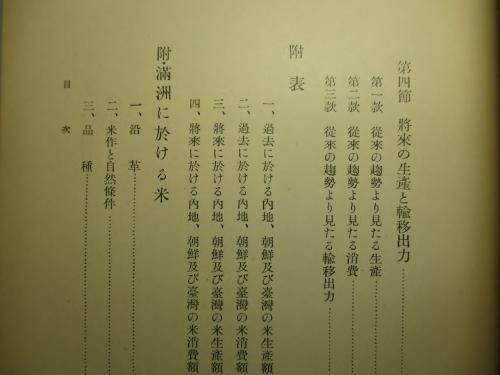 第四節 將來の生產と輸移出力
第一款 從來の趨勢より見たる生產
第二款 從來の趨勢より見たる消費
第三款 從來の趨勢より見たる輸移出力
附表
一、過去に於ける內地、朝鮮及び臺灣の米生產額
二、過去に於ける內地、朝鮮及び臺灣の米消費額
三、將來に於ける內地、朝鮮及び臺灣の米生產額
四、將來に於ける內地、朝鮮及び臺灣の米消費額
附・滿洲に於ける米
一、沿革
二、米作と自然條件
三、品種
目次